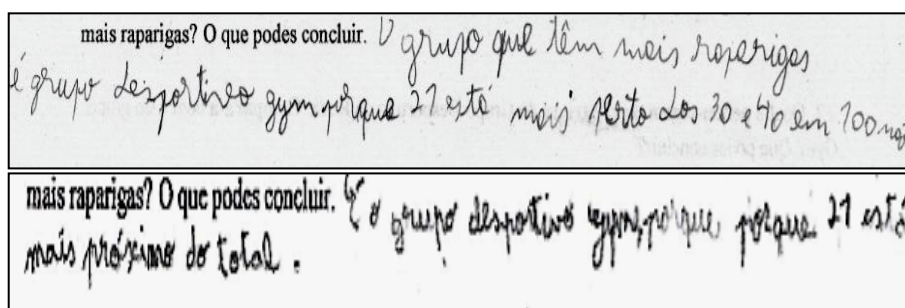 mais raparigas? O que podes concluir. O grupo que têm mais raparigas
é grupo desportivo gym porque 21 está mais perto dos 30 e 40 em 100 não
mais raparigas? O que podes concluir. É o grupo desportivo gym, porque porque 21 está
mais próximo do total.